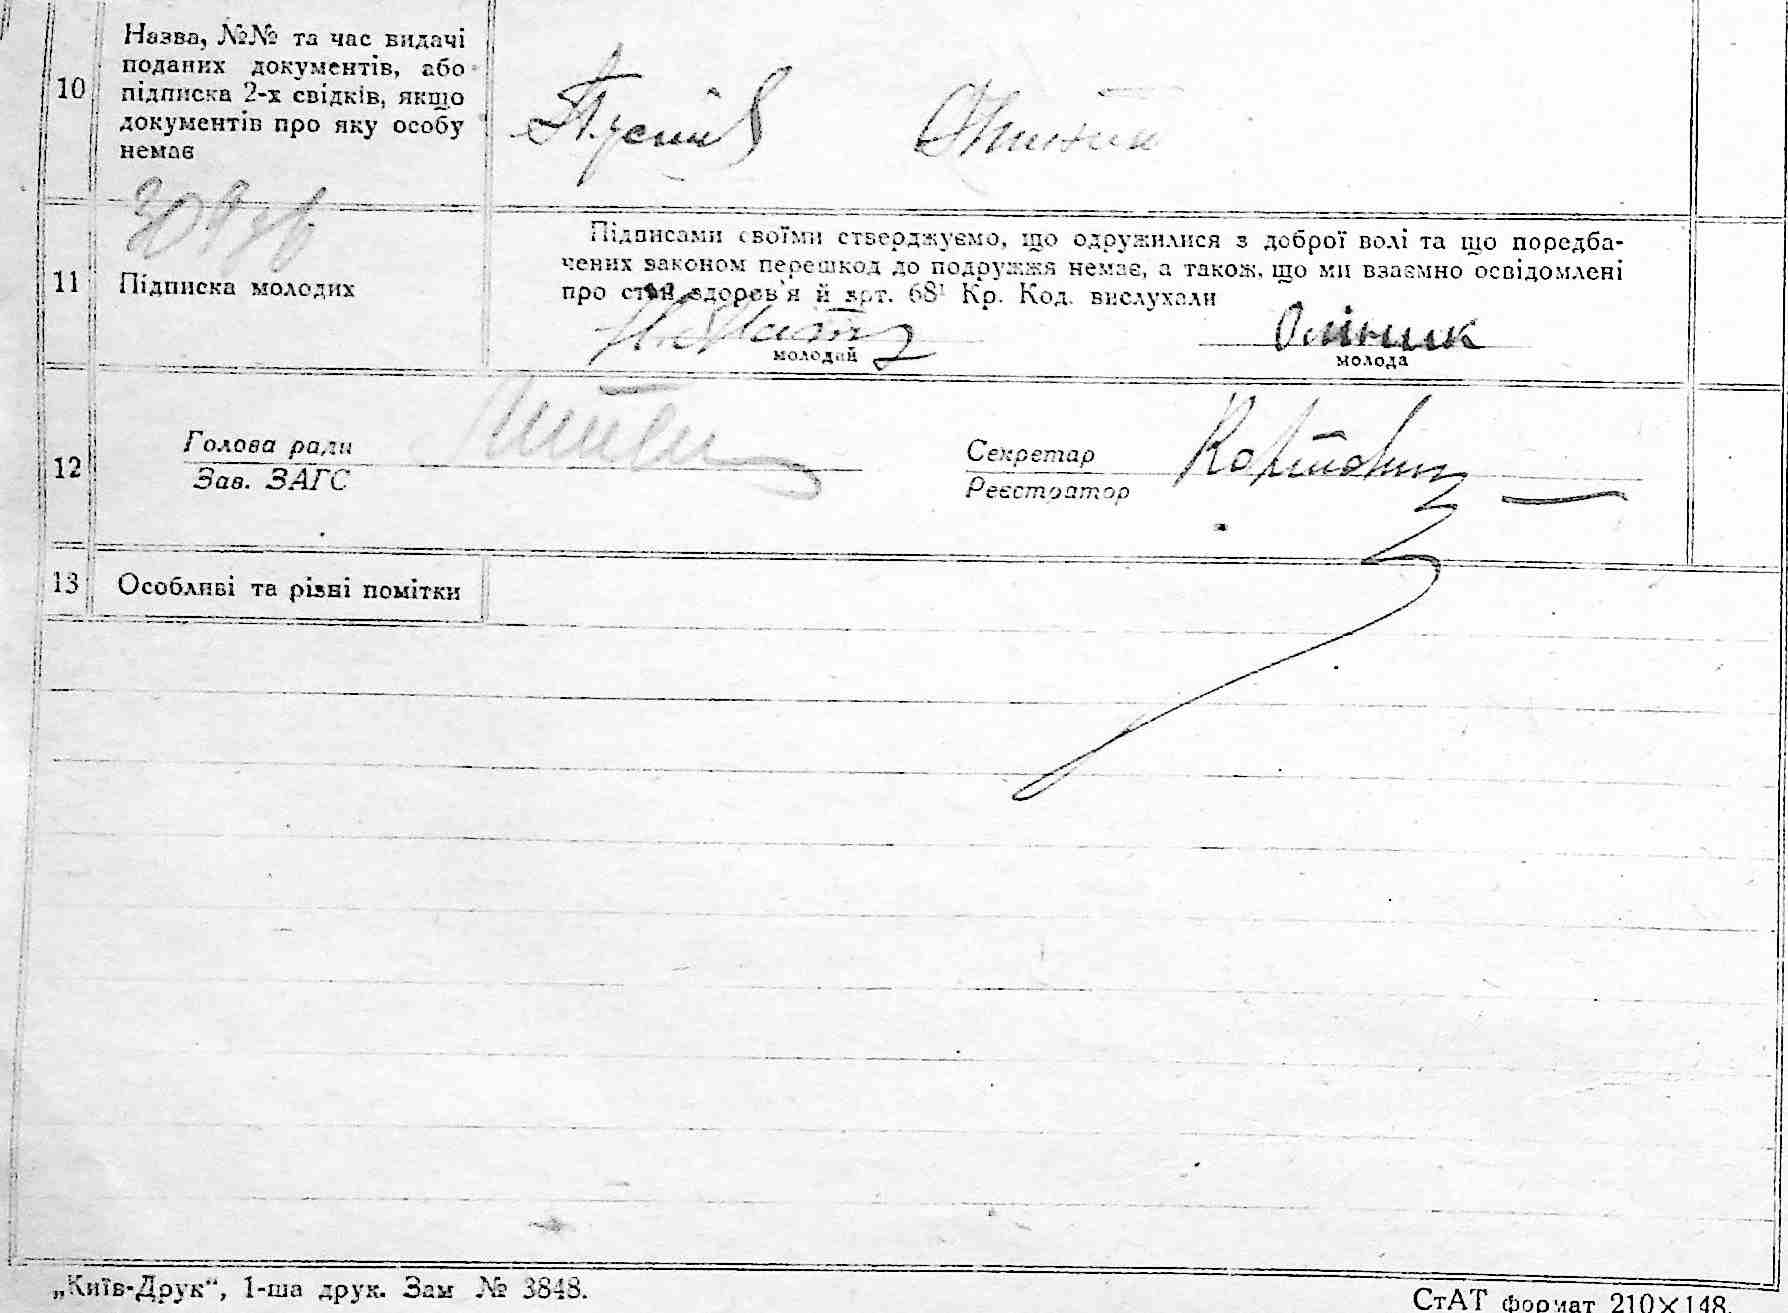 Назва, №№ та час видачі
поданих документів, або
10 підписка 2-х свідків, якщо
документів про яку особу
немає
Підписами своїми стверджуємо, що одружилися з доброї волі та що передба-
чених законом перешкод до подружжя немає, а також, що ми взаємно освідомлені
11 Підписка молодих про стан здоров'я й арт. 68¹ Кр. Код. вислухали
Олійник
молодий молода
Голова ради Секретар
12
Зав. ЗАГС Реєстратор
13 Особливі та різні помітки
„Київ-Друк“, 1-ша друк. Зам № 3848.
СтАТ формат 210×148.